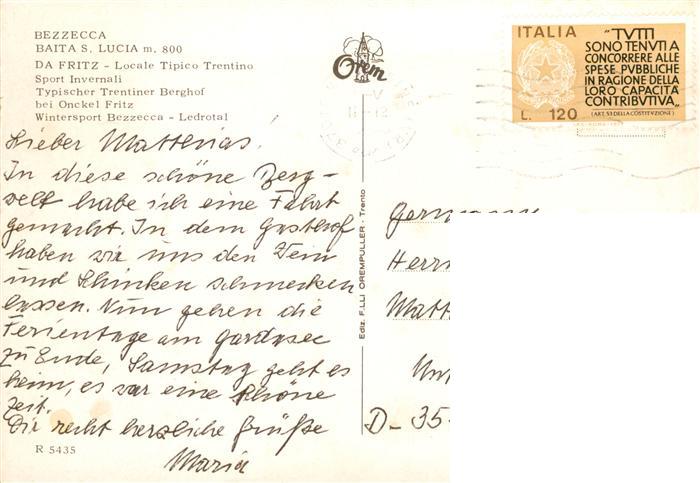 BEZZECCA
BAITA S. LUCIA m. 800
DA FRITZ - Locale Tipico Trentino
Sport Invernali
Typischer Trentiner Berghof
bei Onckel Fritz
Wintersport Bezzecca - Ledrotal
Orem
ITALIA
"TUTTI
SONO TENUTI A
CONCORRERE ALLE
SPESE PUBBLICHE
IN RAGIONE DELLA
LORO CAPACITÀ
CONTRIBUTIVA„
(ART. 53 DELLA COSTITUZIONE)
L. 120
Lieber Matthias!
In diese schöne Berg-
welt habe ich eine Fahrt
gemacht. In dem Gasthof
haben wir uns den Wein
und Schinken schmecken
lassen. Nun gehen die
Ferientage am Gardasee
zu Ende, Samstag geht es
heim, es war eine schöne
Zeit.
Dir recht herzliche Grüße
Maria
R 5435
Ediz. F.LLI OREMPULLER - Trento
Germany
Herrn
Matt
D- 35